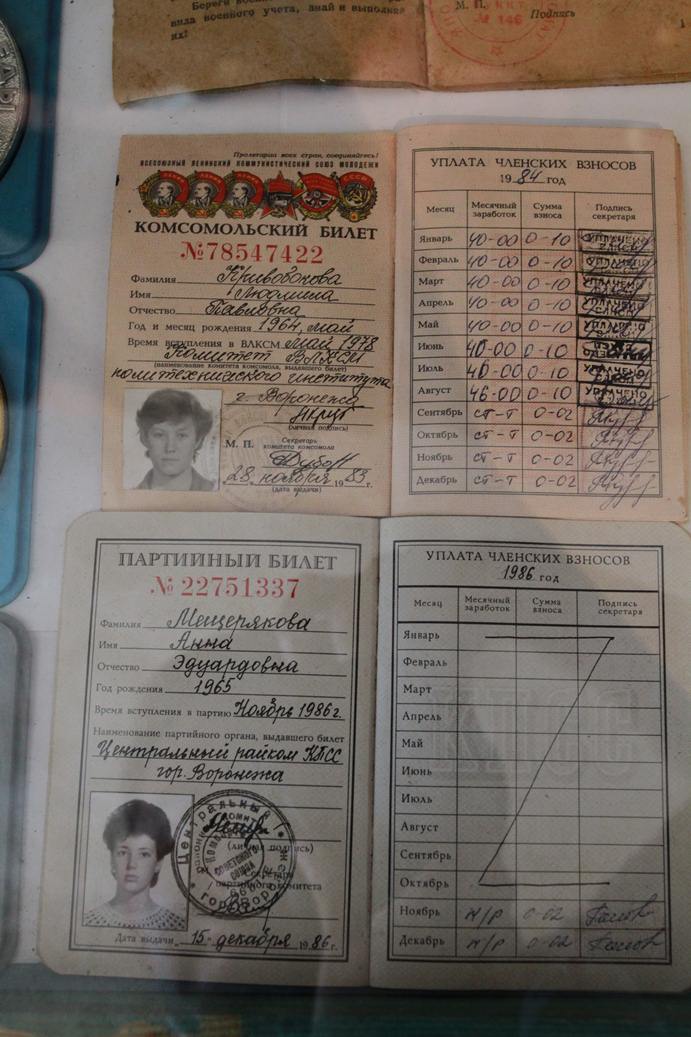 Береги
вила военного учета, знай и выполняй
их!
М. П.
№ 146
Подпись
Пролетарии всех стран, соединяйтесь!
ВСЕСОЮЗНЫЙ ЛЕНИНСКИЙ КОММУНИСТИЧЕСКИЙ СОЮЗ МОЛОДЕЖИ
КОМСОМОЛЬСКИЙ БИЛЕТ
№78547422
Фамилия Кривобокова
Имя Людмила
Отчество Павловна
Год и месяц рождения 1964, май
Время вступления в ВЛКСМ май 1978
Комитет ВЛКСМ
(наименование комитета комсомола, выдавшего билет)
политехнического института
г. Воронежа
(личная подпись)
М. П.
Секретарь
комитета комсомола
28 ноября 1983 г.
(дата выдачи)
УПЛАТА ЧЛЕНСКИХ ВЗНОСОВ
1984 год
Месяц Месячный заработок Сумма взноса Подпись секретаря
Январь 40-00 0-10 УПЛАЧЕНО
Февраль 40-00 0-10 УПЛАЧЕНО
Март 40-00 0-10 УПЛАЧЕНО
Апрель 40-00 0-10 УПЛАЧЕНО
Май 40-00 0-10 УПЛАЧЕНО
Июнь 40-00 0-10
Июль 40-00 0-10 УПЛАЧЕНО
Август 46-00 0-10 УПЛАЧЕНО
Сентябрь ст-т 0-02
Октябрь ст-т 0-02
Ноябрь ст-т 0-02
Декабрь ст-т 0-02
ПАРТИЙНЫЙ БИЛЕТ
№ 22751337
Фамилия Мещерякова
Имя Анна
Отчество Эдуардовна
Год рождения 1965
Время вступления в партию Ноябрь 1986 г.
Наименование партийного органа, выдавшего билет
Центральный райком КПСС
гор. Воронежа
(личная подпись)
партийного комитета
Дата выдачи 15 декабря 1986 г.
УПЛАТА ЧЛЕНСКИХ ВЗНОСОВ
1986 год
Месяц Месячный заработок Сумма взноса Подпись секретаря
Январь
Февраль
Март
Апрель
Май
Июнь
Июль
Август
Сентябрь
Октябрь
Ноябрь н/р 0-02
Декабрь н/р 0-02